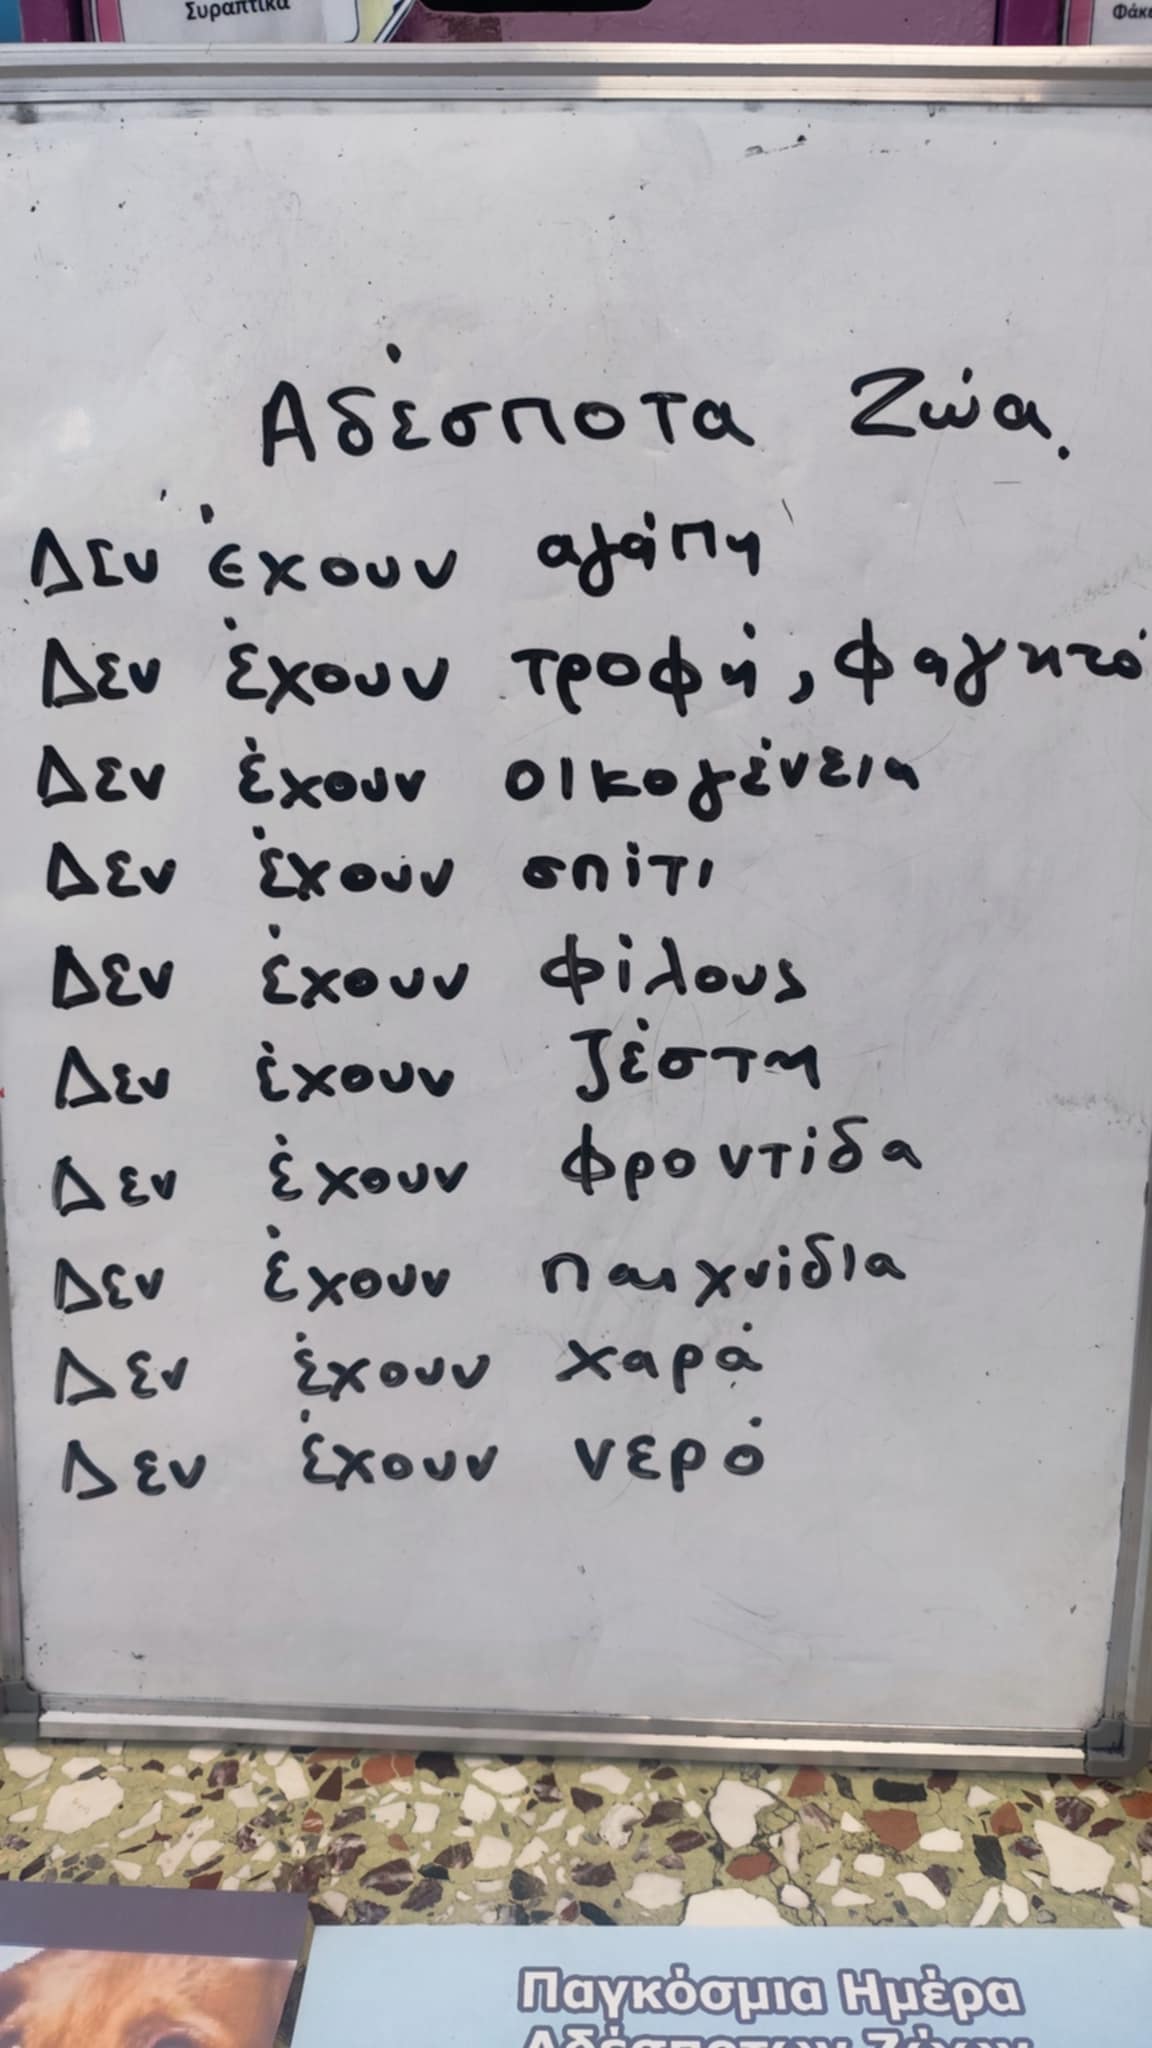 Συραπτικά
Αδέσποτα Ζώα.
Δεν έχουν αγάπη
Δεν έχουν τροφή, φαγητό
Δεν έχουν οικογένεια
Δεν έχουν σπίτι
Δεν έχουν φίλους
Δεν έχουν ζέστη
Δεν έχουν φροντίδα
Δεν έχουν παιχνίδια
Δεν έχουν χαρά
Δεν έχουν νερό
Παγκόσμια Ημέρα
Αδέσποτων Ζώων